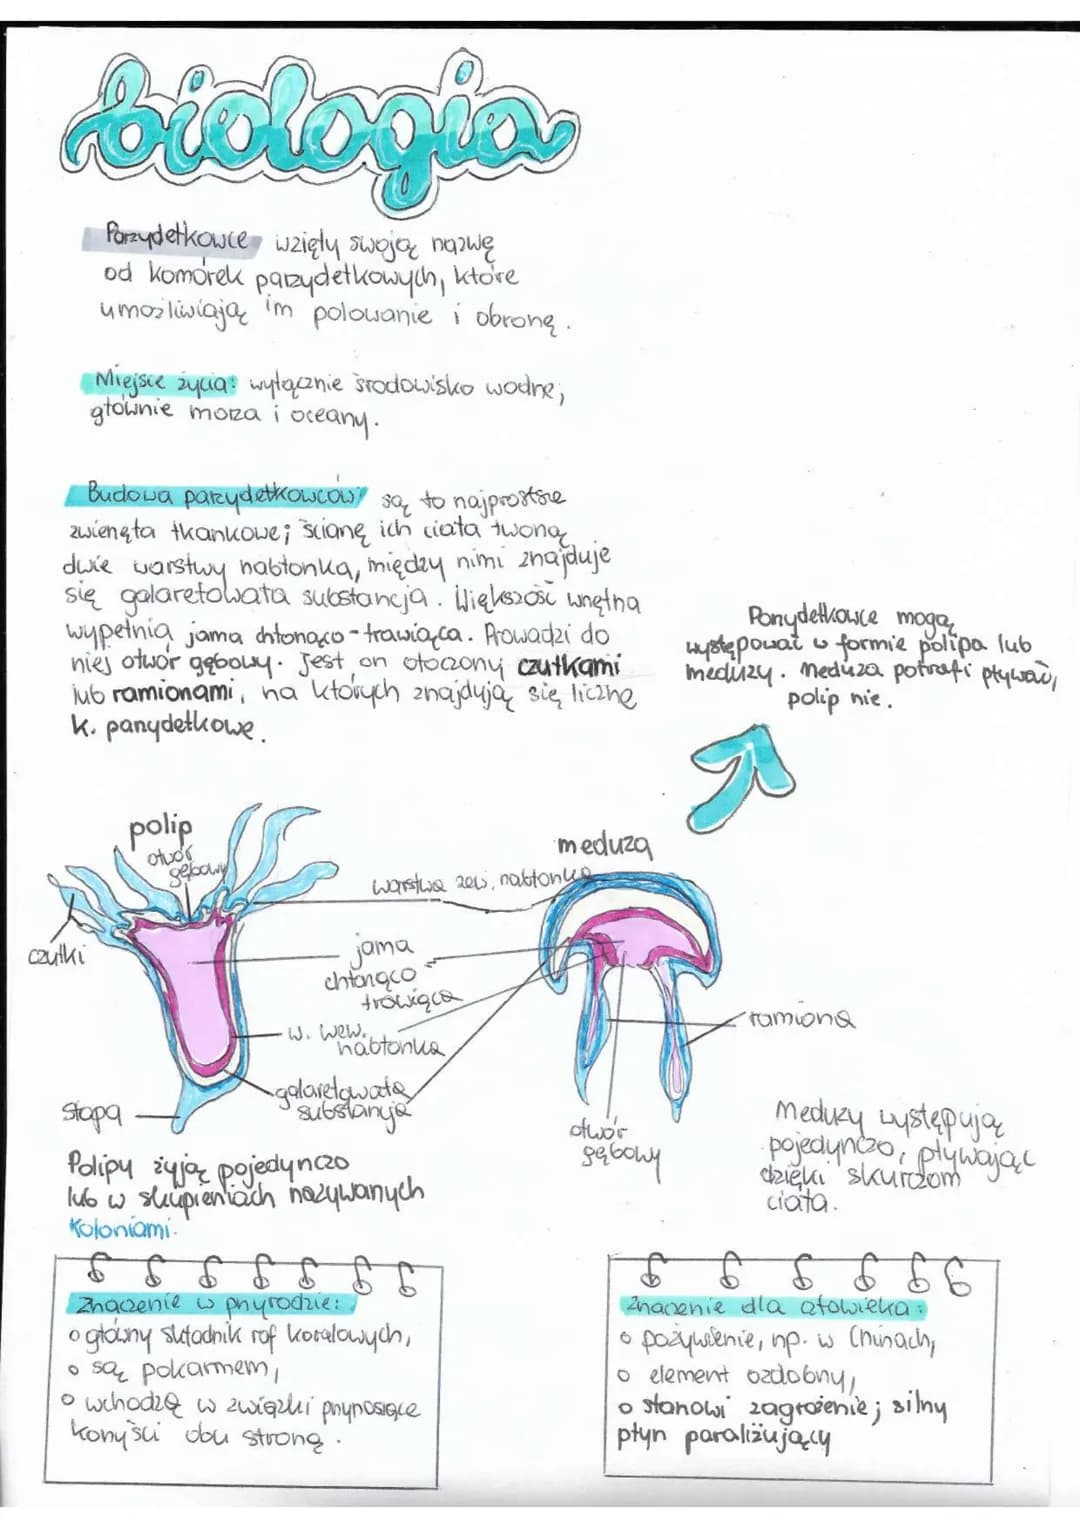 biologia
Parzydełkowce wzięły swoją nazwę
od komórek parzydełkowych, które
umożliwiają im polowanie i obronę.
Miejsce życia: wyłącznie środowisko wodne,
głównie morza i oceany.
Budowa parzydełkowców: są to najprostsze
zwierzęta tkankowe; ścianę ich ciała tworzą
dwie warstwy nabłonka, między nimi znajduje
się galaretowata substancja. Większość wnętrza
wypełnia jama chłonąco-trawiąca. Prowadzi do
niej otwór gębowy. Jest on otoczony czułkami
lub ramionami, na których znajdują się liczne
k. parzydełkowe.
Parzydełkowce mogą
występować w formie polipa lub
meduzy. Meduza potrafi pływać,
polip nie.
polip
otwór
gębowy
czułki
meduza
warstwa zew. nabłonka
jama
chłonąco
trawiąca
w. wew.
nabłonka
galaretowata
substancja
stopa
ramiona
otwór
gębowy
Polipy żyją pojedynczo
lub w skupieniach nazywanych
koloniami.
Meduzy występują
pojedynczo, pływając
dzięki skurczom
ciała.
Znaczenie w przyrodzie:
główny składnik raf koralowych,
są pokarmem,
wchodzą w związki przynoszące
korzyści obu stroną.
Znaczenie dla człowieka:
pożywienie, np. w Chinach,
element ozdobny,
stanowi zagrożenie; silny
płyn paraliżujący